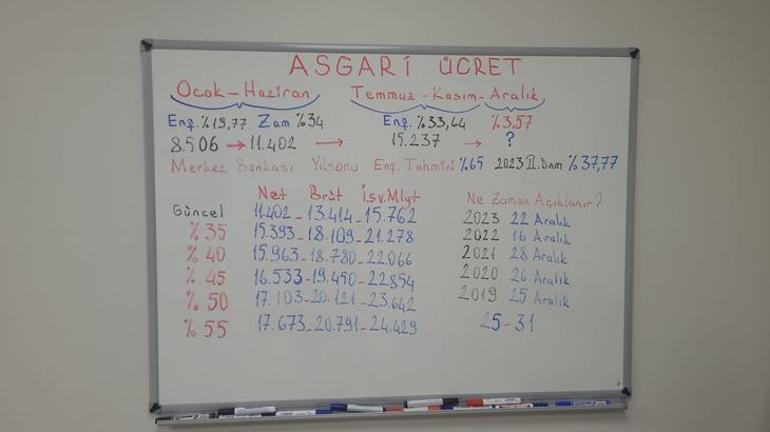 ASGARİ ÜCRET
Ocak-Haziran Temmuz-Kasım-Aralık
Enf.%19,77 Zam %34 Enf.%33,64 %3,57
8.506 → 11.402 → 15.237 → ?
Merkez Bankası Yılsonu Enf. Tahmini %65 2023 II.Dnm %37,77
Net Brüt İşv.Mlyt
Güncel 11.402-13.414-15.762
%35 15.393-18.109-21.278
%40 15.963-18.780-22.066
%45 16.533-19.450-22.854
%50 17.103-20.121-23.642
%55 17.673-20.791-24.429
Ne Zaman Açıklanır?
2023 22 Aralık
2022 16 Aralık
2021 28 Aralık
2020 26 Aralık
2019 25 Aralık
25-31